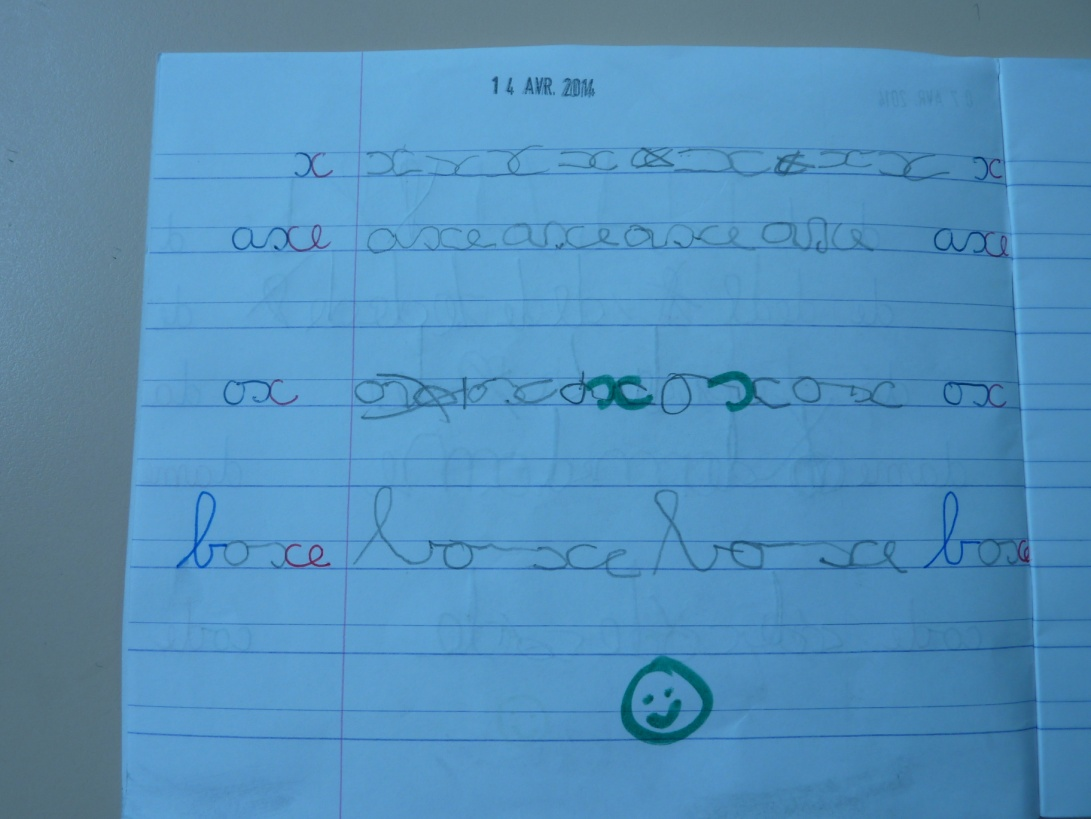 14 AVR. 2014
x x x x x x x x x x x
axe axe axe axe axe axe
ox ox ox ox ox ox ox
boxe boxe boxe boxe